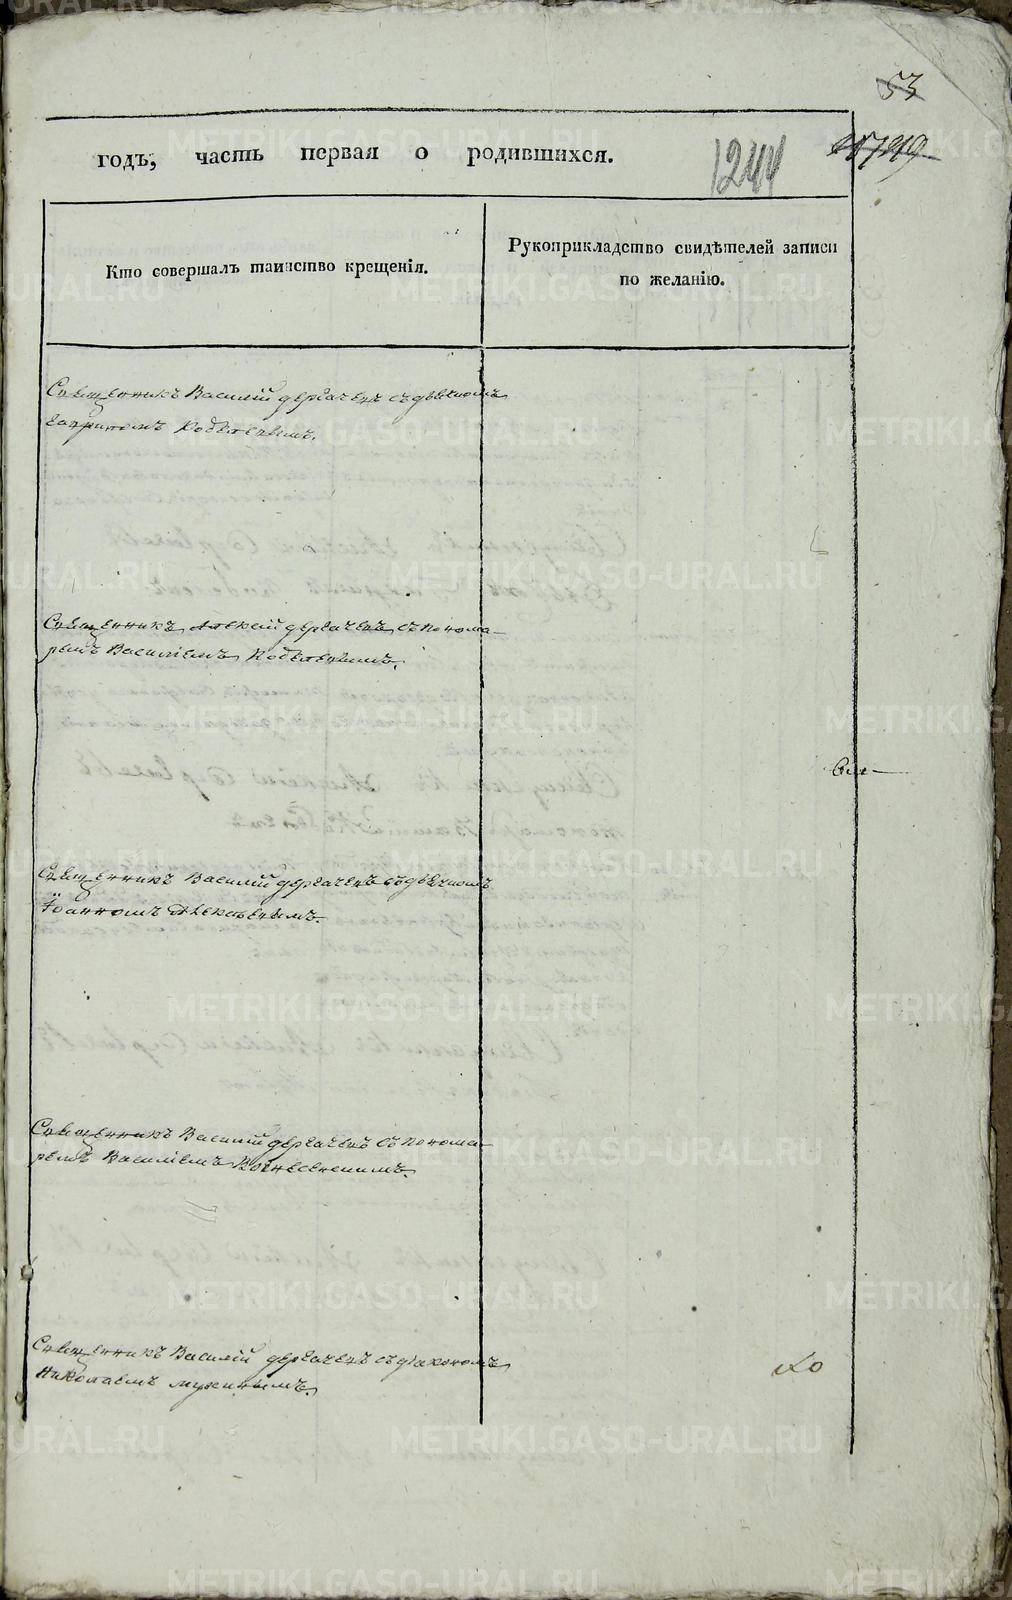 53
годъ, часть первая о родившихся.
1244
Кто совершалъ таинство крещенія.
Рукоприкладство свидѣтелей записи
по желанію.
Священникъ Василій дергачевъ съ дьячкомъ
Священникъ Алексій дергачевъ съ понома-
ремъ Василіемъ
Священникъ Василій дергачевъ съ дьячкомъ
Іоанномъ Алексѣевымъ.
Священникъ Василій дергачевъ съ понома-
ремъ Василіемъ Вознесенскимъ.
Священникъ Василій дергачевъ съ діакономъ
Николаемъ
METRIKI.GASO-URAL.RU